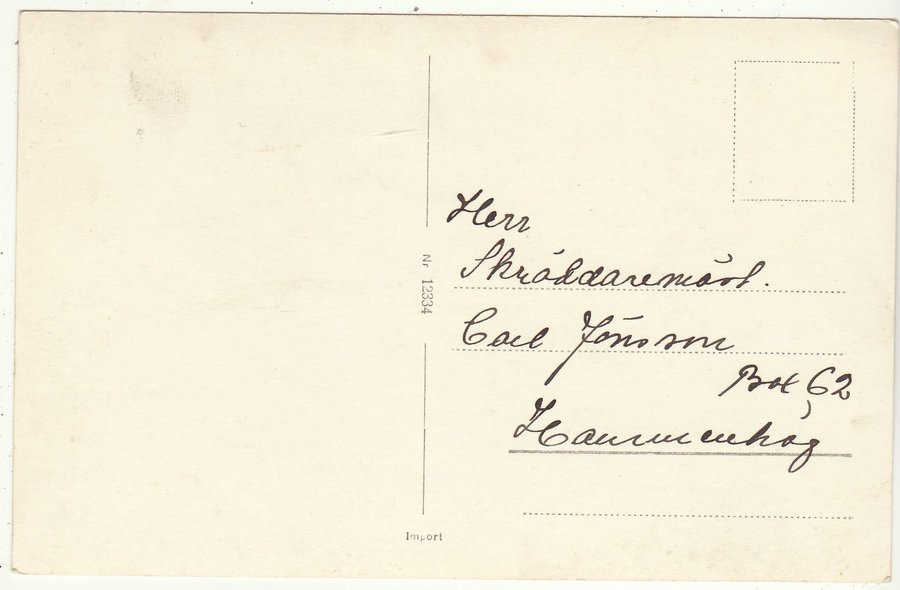 Herr
Skräddaremäst.
Carl Jönsson
Box 62
Hammenhög
Nr 12334
Import